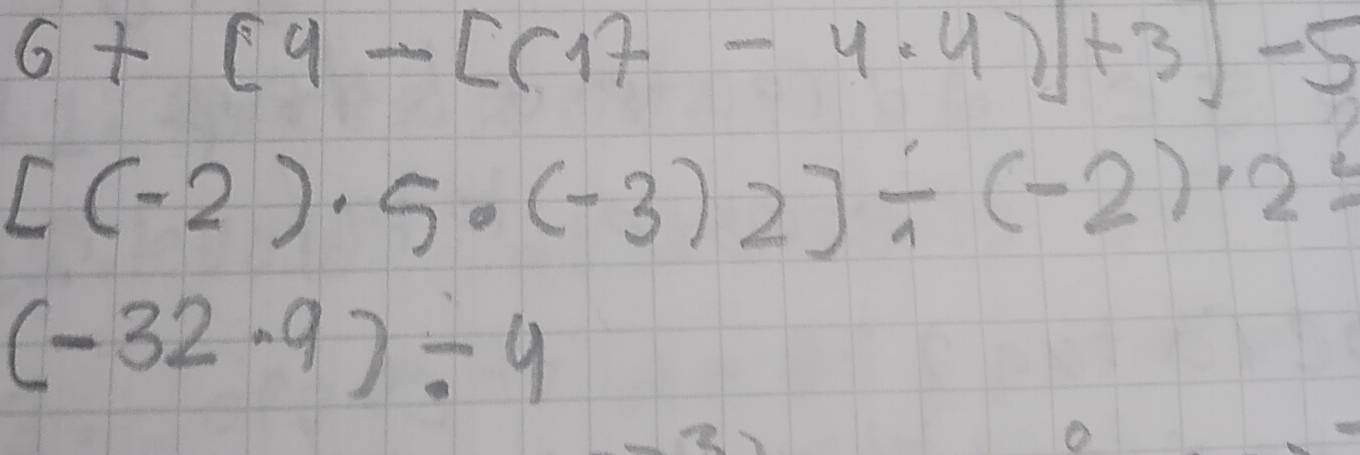 6 + [4 - [(17 - 4 · 4)] + 3] - 5
[(-2) · 5 · (-3) 2] ÷ (-2) · 2 =
(-32 · 9) ÷ 9